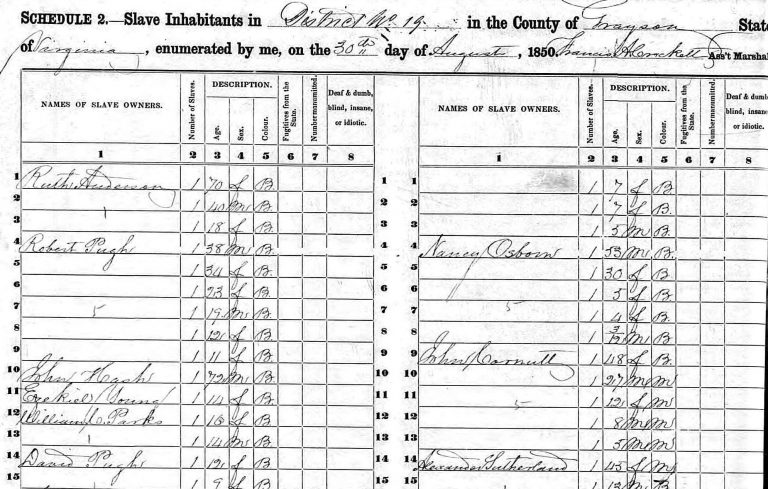 SCHEDULE 2.—Slave Inhabitants in District No 19 in the County of Grayson State
of Virginia, enumerated by me, on the 30th day of August, 1850. Francis A Crockett Ass't Marshal
NAMES OF SLAVE OWNERS. Number of Slaves. DESCRIPTION. Age. Sex. Colour. Fugitives from the State. Number manumitted. Deaf & dumb, blind, insane, or idiotic.
1 2 3 4 5 6 7 8
1 Ruth Anderson 1 70 f B
2 1 40 m B
3 1 18 f B
4 Robert Pugh 1 38 m B
5 1 34 f B
6 1 23 f B
7 5 1 19 m B
8 1 12 f B
9 1 11 f B
10 John Hash 1 72 m B
11 Ezekiel Young 1 14 f B
12 William C Parks 1 16 f B
13 1 14 m B
14 David Pugh 1 12 f B
15 1 9 f B
NAMES OF SLAVE OWNERS. Number of Slaves. DESCRIPTION. Age. Sex. Colour. Fugitives from the State. Number manumitted. Deaf & dumb, blind, insane, or idiotic.
1 2 3 4 5 6 7 8
1 1 1 7 f B
2 2 1 7 f B
3 3 1 5 m B
4 4 Nancy Osborn 1 53 m B
5 5 1 30 f B
6 6 1 5 f B
7 7 5 1 4 f B
8 8 1 3/12 m B
9 9 John Cornutt 1 48 f B
10 10 1 27 m m
11 11 5 1 12 f m
12 12 1 8 m m
13 13 1 5 m m
14 14 Alexander Sutherland 1 45 f m
15 15 1 13 m B